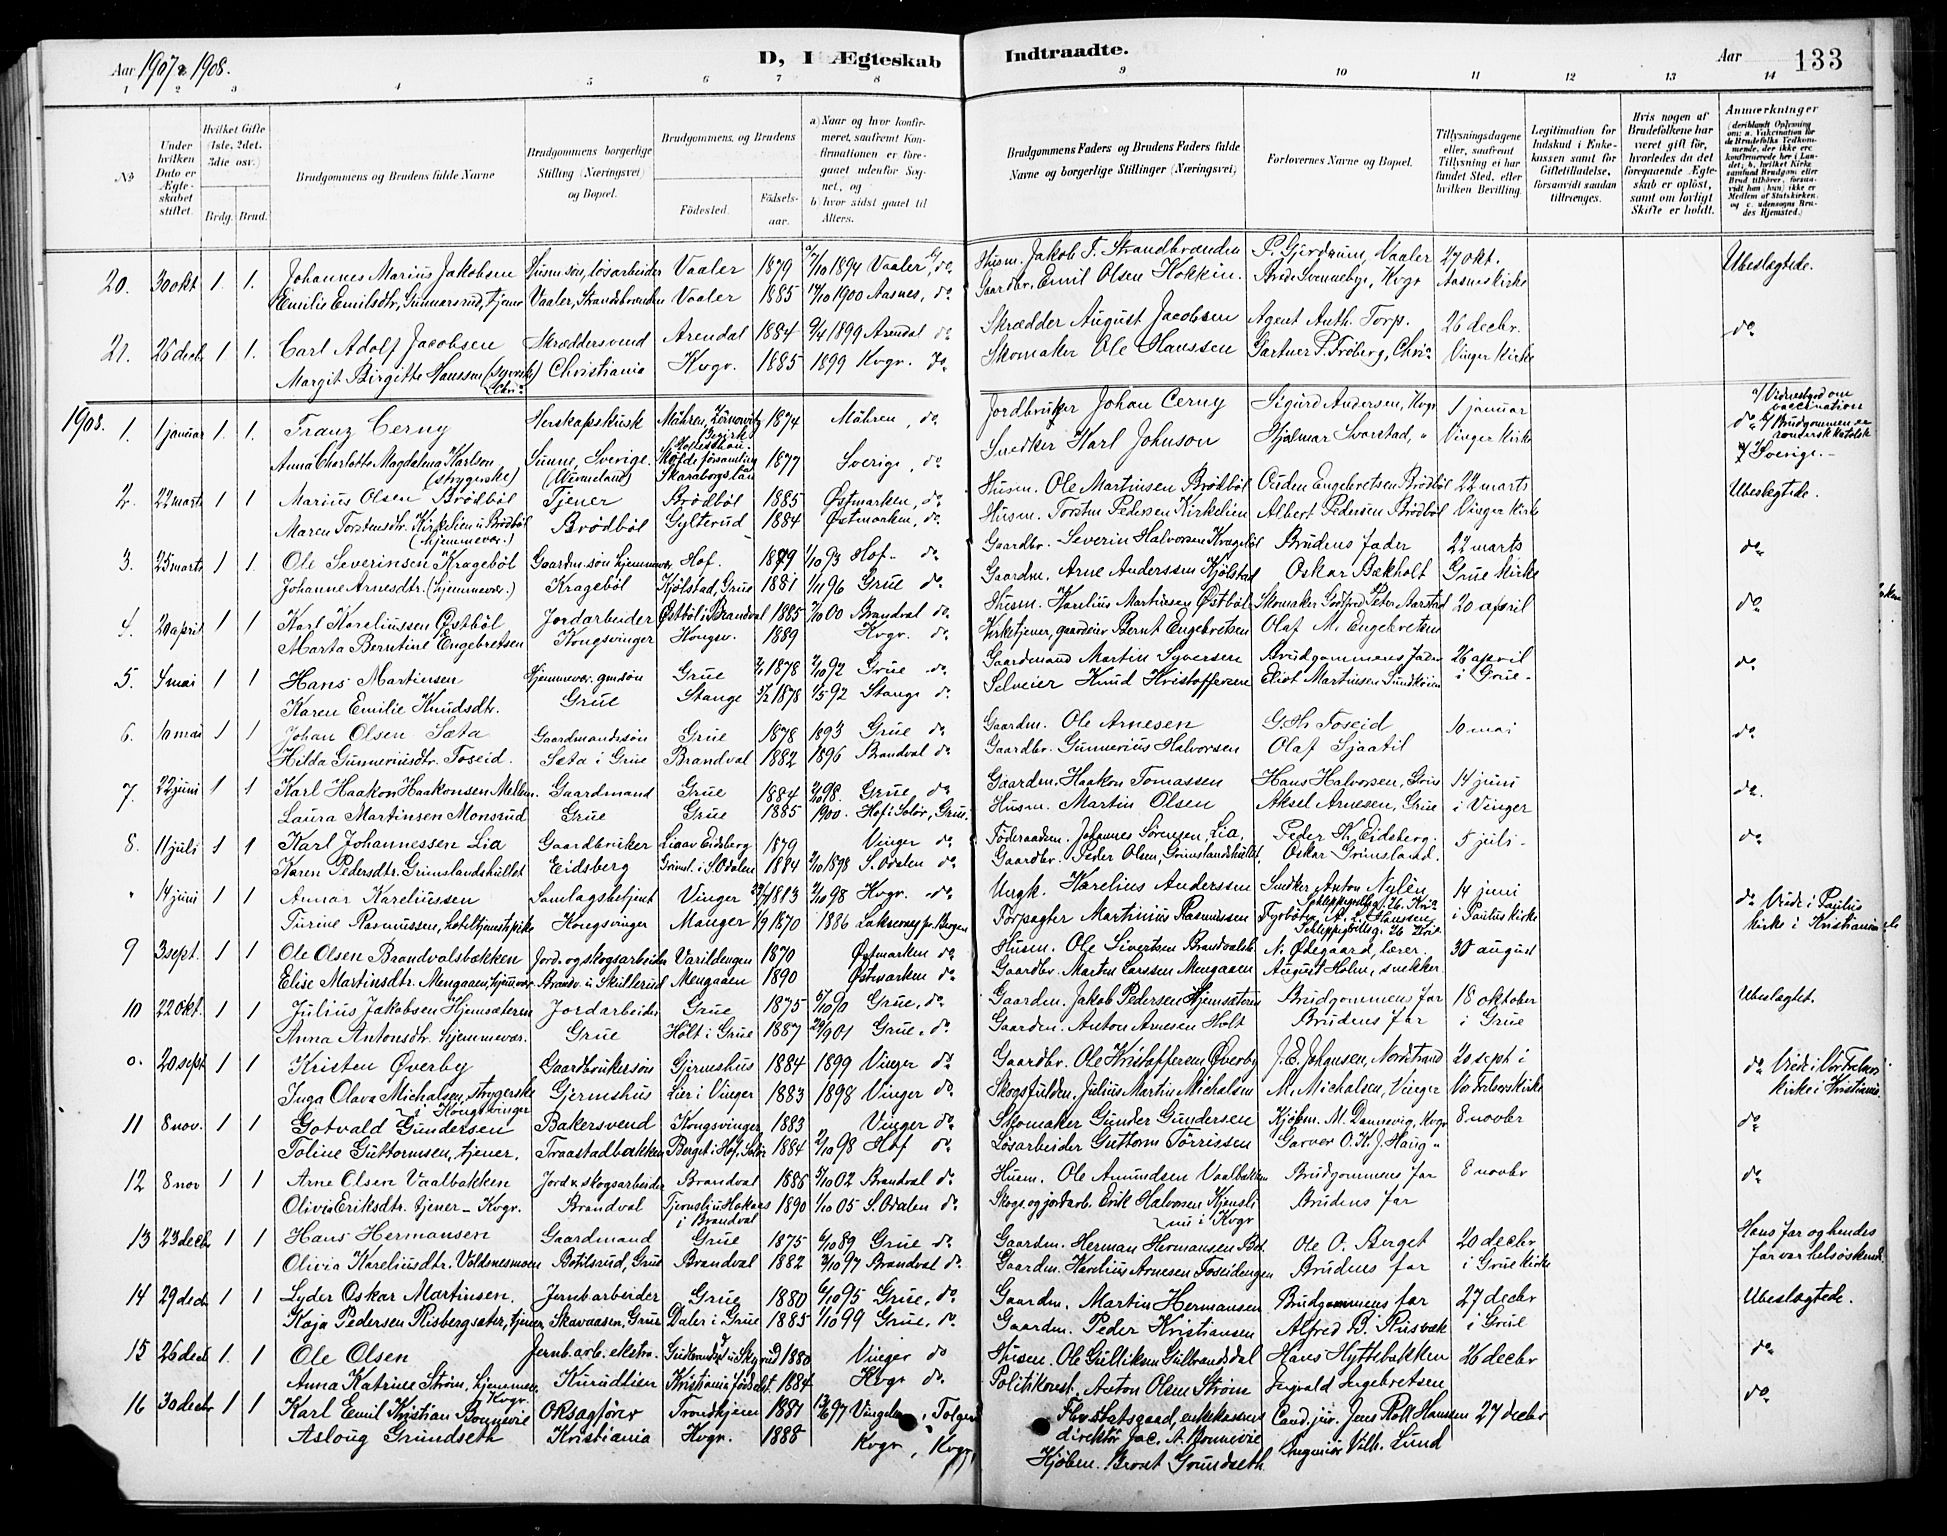 Aar 1907 & 1908.
D, I Ægteskab Indtraadte.
Aar 133
1 2 3 4 5 6 7 8 9 10 11 12 13 14
No
Under hvilken Dato er Ægteskabet stiftet.
Hvilket Gifte (1ste, 2det, 3die osv.)
Brdg. Brud.
Brudgommens og Brudens fulde Navne
Brudgommens borgerlige Stilling (Næringsvei) og Bopæl.
Brudgommens og Brudens
Fødested. Fødselsaar.
a) Naar og hvor konfirmeret, saafremt Konfirmationen er foregaaet udenfor Sognet, og
b) hvor sidst gaaet til Alters.
Brudgommens Faders og Brudens Faders fulde Navne og borgerlige Stillinger (Næringsvei)
Forlovernes Navne og Bopæl.
Tillysningsdagene eller, saafremt Tillysning ei har fundet Sted, efter hvilken Bevilling.
Legitimation for Indskud i Enkekassen samt for Giftetilladelse, forsaavidt saadan tiltrænges.
Hvis nogen af Brudefolkene har været gift før, hvorledes da det foregaaende Ægteskab er opløst, samt om lovligt Skifte er holdt.
Anmerkninger
20. 30 okt 1 1. Johannes Marius Jakobsen Husm søn, løsarbeider Vaaler 1879 7/10 1894 Vaaler, do Husm. Jakob T. Strandbraaden P. Gjerdrum, Vaaler 27 okt. Ubeslægtede.
Emilie Emilsdtr. Gunnarsrud, tjener Vaaler, Strandbraaden Vaaler 1885 14/10 1900 Aasnes, do Gaardbr. Emil Olsen Hokkin. Kvgr Aasnes kirke
21. 26 decbr 1 1. Carl Adolf Jacobsen Skræddersvend Arendal 1884 9/4 1899 Arendal do Skrædder August Jacobsen Agent Anth. Torp. 26 decbr. do
Margit Birgitte Hanssen (syerske) Chr.a Christiania Kvgr. 1885 1899 Kvgr. do Skomaker Ole Hanssen Gartner P. Froberg, Chr.a Vinger kirke
1908. 1. 1 januar 1 1 Franz Cerny Herskapskusk Mähren, 1874 Mähren, do Jordbruker Johan Cerny Sigurd Andersen, Kvgr 1 januar a/ Vidnesbyrd om vaccination
do b/ Brudgommen er romersk katolsk
Anna Charlotte Magdalena Karlson (strygerske) Sunne, Sverige. (Wermeland) Skaraborgs län 1877 Sverige, do Snedker Karl Johnson Hjalmar Svorstad, " Vinger kirke c/ Sverige.-
2. 22 marts 1 1 Marius Olsen Brødbøl Tjener Brødbøl 1885 Østmarken, do Husm. Ole Martinsen Brødbøl Ouden Engebretsen Brødbøl 22 marts Ubeslægtede.
Maren Torstensdtr. Kirkelien u Brødbøl (hjemmevær.) Brødbøl Gylterud 1884 Østmarken, do Husm. Torsten Pedersen Kirkelien Albert Pedersen Brødbøl Vinger kirke
3. 25 marts 1 1. Ole Severinsen Kragebøl Gaardm. søn hjemmevær Hof. 1879 1/10 93 Hof- do Gaardbr. Severin Halvorsen Kragebøl Brudens fader 22 marts do
Johanne Arnesdtr. (hjemmevær.) Kragebøl Kjølstad, Grue 1881 1/11 96 Grue do Gaardm. Arne Anderssen Kjølstad Oskar Bækholt Grue kirke
4. 20 april 1 1 Karl Kareliussen Østbøl Jordarbeider Østbøl i Brandval 1885 7/10 00 Brandval do Husm. Karelius Martinsen Østbøl Skomaker Godfred Peter Aarstad 20 april do
Marta Berntine Engebretsen Kongsvinger Kongsv. 1889 Kvgr. do Kirketjener, gaardeier Bernt Engebretsen Olaf M. Engebretsen
5. 4 mai 1 1 Hans Martinsen Hjemmevær. gmsøn Grue 1878 2/10 92 Grue do Gaardmand Martin Syversen Brudgommens fader 26 april do
Karen Emilie Knudsdtr. Grue Stange 3/2 1878 1/5 92 Stange do Selveier Knud Kristoffersen Eliot Martinsen i Grue-
6. 10 mai 1 1 Johan Olsen Sæta Gaardmandssøn Grue 1878 1893 Grue do Gaardm. Ole Arnesen G. Th Foseid 10 mai do
Hilda Gunneriusdtr. Foseid. Sæta i Grue Brandval 1882 1896 Brandval do Gaardbr. Gunnerius Halvorsen Olaf Sjaatil
7. 22 juni 1 1 Karl Haakon Haakonsen Mellem. Gaardmand Grue 1884 2/10 98. Grue do Gaardm. Haakon Tomassen Hans Halvorsen, Grue 14 juni do.
Laura Martinsen Monsrud Grue Grue 1885 1900. Hof i Solør, Grue. Husm. Martin Olsen Aksel Arnesen, Grue i Vinger
8. 11 juli 1 1 Karl Johannessen Lia Gaardbruker Lia av Eidsberg 1879 Vinger do Føderaadm. Johannes Sørensen, Lia, Peder K. Eidsberg. 5 juli- do
Karen Pedersdtr. Grimslandshullet Eidsberg Grimsl. i S. Odalen 1884 2/10 1898 S. Odalen do Gaardbr. Peder Olsen, Grimslandshullet Oskar Grimsland.
" 14 juni 1 1 Annar Kareliussen Samlagsbetjent Vinger 1883 2/10 98 Kvgr. do Ungk. Karelius Anderssen Snedker Anton Nylén 14 juni do Viede i Paulus
Turine Rasmussen, hoteltjenestpike Kongsvinger Manger 1/9 1870 1886 Laksevaag pr. Bergen Forpagter Martinius Rasmussen Fyrbøter A. L. Hanssen i Paulus kirke kirke i Kristiania
9 3 sept. 1 1 Ole Olsen Brandvalsbækken Jord. og skogsarbeider Varildengen 1870 Østmarken do Husm. Ole Sivertsen Brandvalsbk N. Ødegaard, lærer. 30 august
Elise Martinsdtr. Mengaaen, hjemmevær Brandv. u Skillerud Mengaaen 1890 Østmarken do Gaardbr. Marten Larssen Mengaaen August Holm, snekker.
10 22 okt. 1 1 Julius Jakobsen Hjemsæteren Jordarbeider Grue 1875 5/10 90 Grue, do Gaardm. Jakob Pedersen Hjemsæteren Brudgommens far 18 oktober Ubeslægtet.
Anna Antonsdtr. hjemmevær. Grue Holt i Grue 1887 29/9 01 Grue, do Gaardm. Anton Arnesen Holt Brudens far i Grue
0. 20 sept 1 1 Kristen Øverby Gaardbrukersøn Gjermshus 1884 1899 Vinger do Gaardbr. Ole Kristoffersen Øverby J. E. Johansen, Nordstrand 20 sept i do Viede i Vor Frelsers
Inga Olava Michalsen, strygerske i Kongsvinger Gjermshus Lier i Vinger 1883 1898 Vinger do Skogsfuldm. Julius Martin Michalsen M. Michalsen, Vinger Vo Frelsers kirke kirke i Kristiania.
11 8 nov. 1 1 Gotvald Gundersen Bakersvend Kongsvinger 1883 Vinger do Skomaker Gunder Gundersen Kjøbm. M. Dannevig, Kvgr 8 novbr do
Toline Guttormsen, tjener. Traastadbakken Berget i Hof, Solør 1884 2/10 98 Hof do Løsarbeider Guttorm Tørrissen Garver O. K. J. Haug "
12 8 nov 1 1 Arne Olsen Vaalbakken Jord & skogsarbeider Brandval 1886 5/10 02 Brandval do Husm. Ole Amundsen Vaalbakken Brudgommens far 8 novbr do
Olivia Eriksdtr. tjener- Kvgr. Brandval Tjernsli u Hokaas i Brandval 1890 1/10 05 S. Odalen do Skogs og jordarb. Erik Halvorsen Kjernsli nu i Kvgr Brudens far
13 23 decbr 1 1 Hans Hermansen Gaardmand Grue 1875 6/10 89 Grue do Gaardm. Herman Hermansen Bot. Ole O. Berget 20 decbr Hans far og hendes
Olivia Kareliusdtr. Voldnesmoen Botilsrud, Grue Brandval 1882 3/10 97 Brandval do Gaardm. Karelius Arnesen Foseidengen Brudens far i Grue kirke far var helsøskende
14 29 decbr 1 1 Lyder Oskar Martinsen. Jernbarbeider Grue 1880 6/10 95 Grue. do Gaardm. Martin Hermansen Brudgommens far 27 decbr Ubeslægtede.
Kaja Pedersen Risbergsæter, tjener Skavaasen, Grue Daler i Grue 1885 1/10 99 Grue. do Gaardm. Peder Kristiansen Alfred B. Rusvæk i Grue
15 26 decbr 1. 1 Ole Olsen Jernb. arb. ekstra. Gulbrandsd u Skyrud 1880 Vinger do Husm. Ole Gulliksen Gulbrandsdal Hans Hyttebakken 26 decbr do
Anna Katrine Strøm, hjemmevær Kvgr. Kurudtien Kristiania fødselst. 1884 Kvgr do Politikonst. Anton Olsen Strøm Ingvald Ingebretsen
16 30 decbr 1 1 Karl Emil Kristian Bonnevie Oksagfører Trondhjem 1881 97 Vingelen, Tolgen Fhv. statsraad, enkekasse- Cand. jur. Jens Roll Hanssen 27 decbr do
direktør Jac. A. Bonnevie
Aslaug Grundseth Kristiania Kvgr. 1888 Kvgr, Kvgr Kjøbm. Bernt Grundseth Ingeniør Vilh. Lund